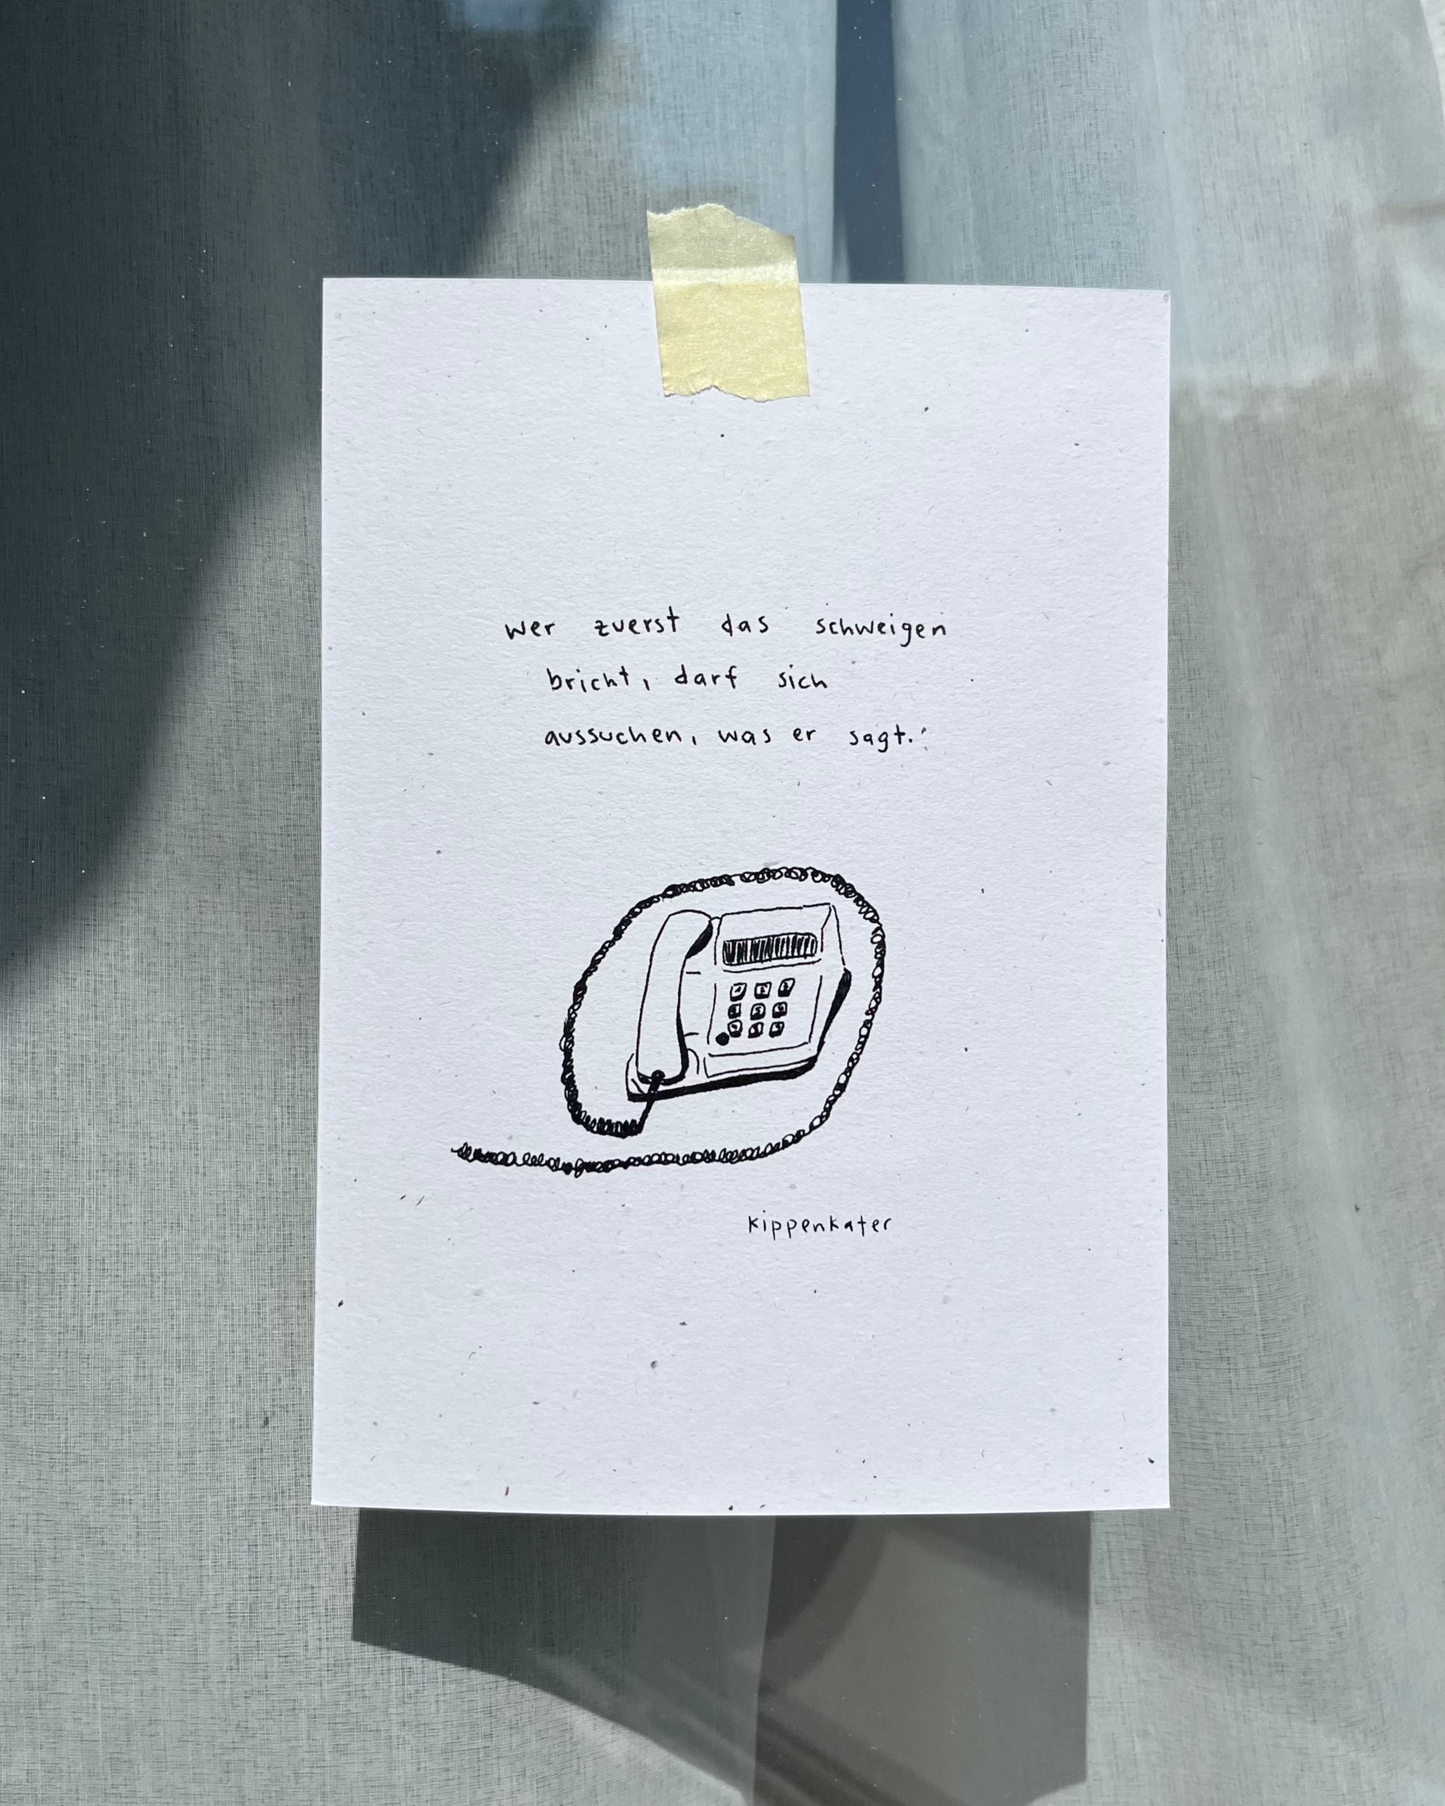 wer zuerst das schweigen
bricht, darf sich
aussuchen, was er sagt.
kippenkater